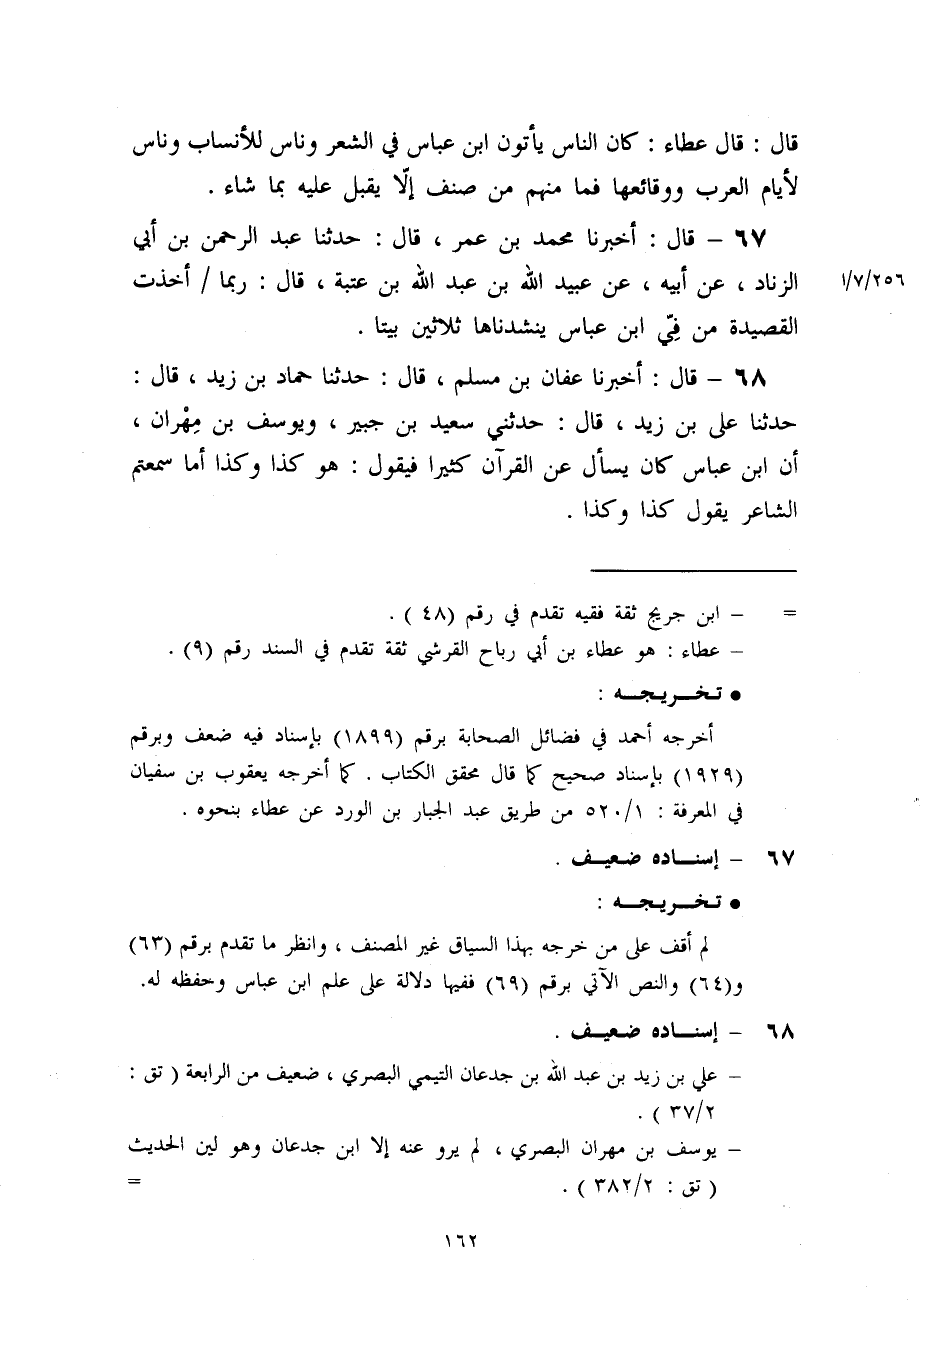 قال : قال عطاء : كان الناس يأتون ابن عباس في الشعر وناس للأنساب وناس
لأيام العرب ووقائعها فما منهم من صنف إلّا يقبل عليه بما شاء .
٦٧ – قال : أخبرنا محمد بن عمر ، قال : حدثنا عبد الرحمن بن أبي
الزناد ، عن أبيه ، عن عبيد الله بن عبد الله بن عتبة ، قال : ربما / أخذت
١/٧/٢٥٦
القصيدة من فِيّ ابن عباس ينشدناها ثلاثين بيتا .
٦٨ – قال : أخبرنا عفان بن مسلم ، قال : حدثنا حماد بن زيد ، قال :
حدثنا على بن زيد ، قال : حدثني سعيد بن جبير ، ويوسف بن مِهْران ،
أن ابن عباس كان يسأل عن القرآن كثيرا فيقول : هو كذا وكذا أما سمعتم
الشاعر يقول كذا وكذا .
= – ابن جريج ثقة فقيه تقدم في رقم (٤٨ ) .
– عطاء : هو عطاء بن أبي رباح القرشي ثقة تقدم في السند رقم (٩) .
● تـخـــريـجـــه :
أخرجه أحمد في فضائل الصحابة برقم (١٨٩٩) بإسناد فيه ضعف وبرقم
(١٩٢٩) بإسناد صحيح كما قال محقق الكتاب . كما أخرجه يعقوب بن سفيان
في المعرفة : ٥٢٠/١ من طريق عبد الجبار بن الورد عن عطاء بنحوه .
٦٧ – إسنـــاده ضعـيــف .
● تـخـــريـجـــه :
لم أقف على من خرجه بهذا السياق غير المصنف ، وانظر ما تقدم برقم (٦٣)
و(٦٤) والنص الآتي برقم (٦٩) ففيها دلالة على علم ابن عباس وحفظه له.
٦٨ – إسنـــاده ضعـيــف .
– علي بن زيد بن عبد الله بن جدعان التيمي البصري ، ضعيف من الرابعة ( تق :
٣٧/٢ ) .
– يوسف بن مهران البصري ، لم يرو عنه إلا ابن جدعان وهو لين الحديث
( تق : ٣٨٢/٢ ) . =
١٦٢